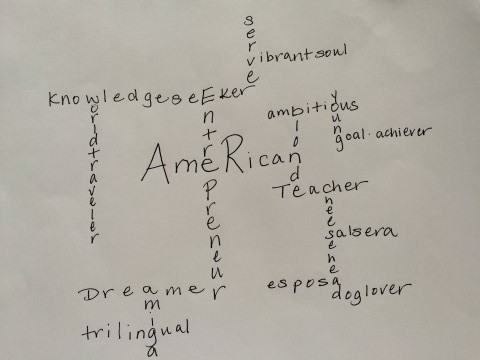 serve
vibrantsoul
KnowledgeseEker
worldtraveler
EntrePreneur
ambitious
young
goal-achiever
blond
AmeRican
Teacher
cheesehead
salsera
esposa
doglover
Dreamer
amiga
trilingual